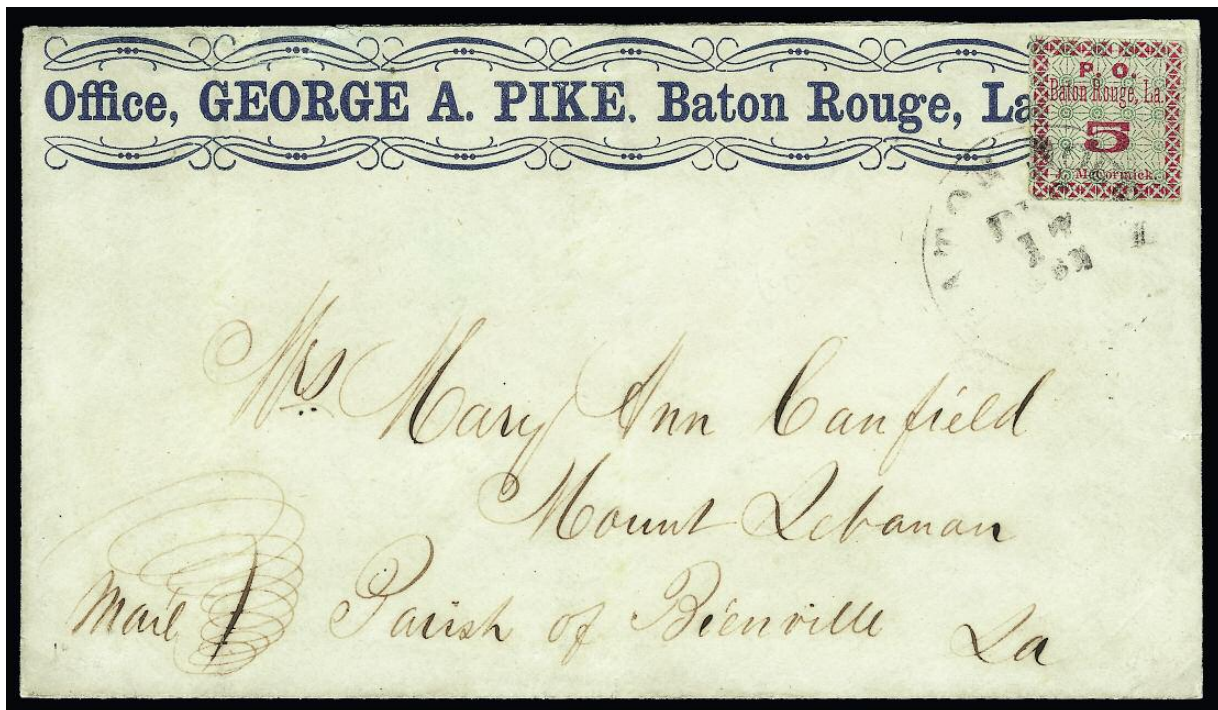 Office, GEORGE A. PIKE. Baton Rouge, La
P. O.
Baton Rouge, La.
5
J. McCormick.
Mrs Mary Ann Canfield
Mount Lebanan
Mail Parish of Bienville La